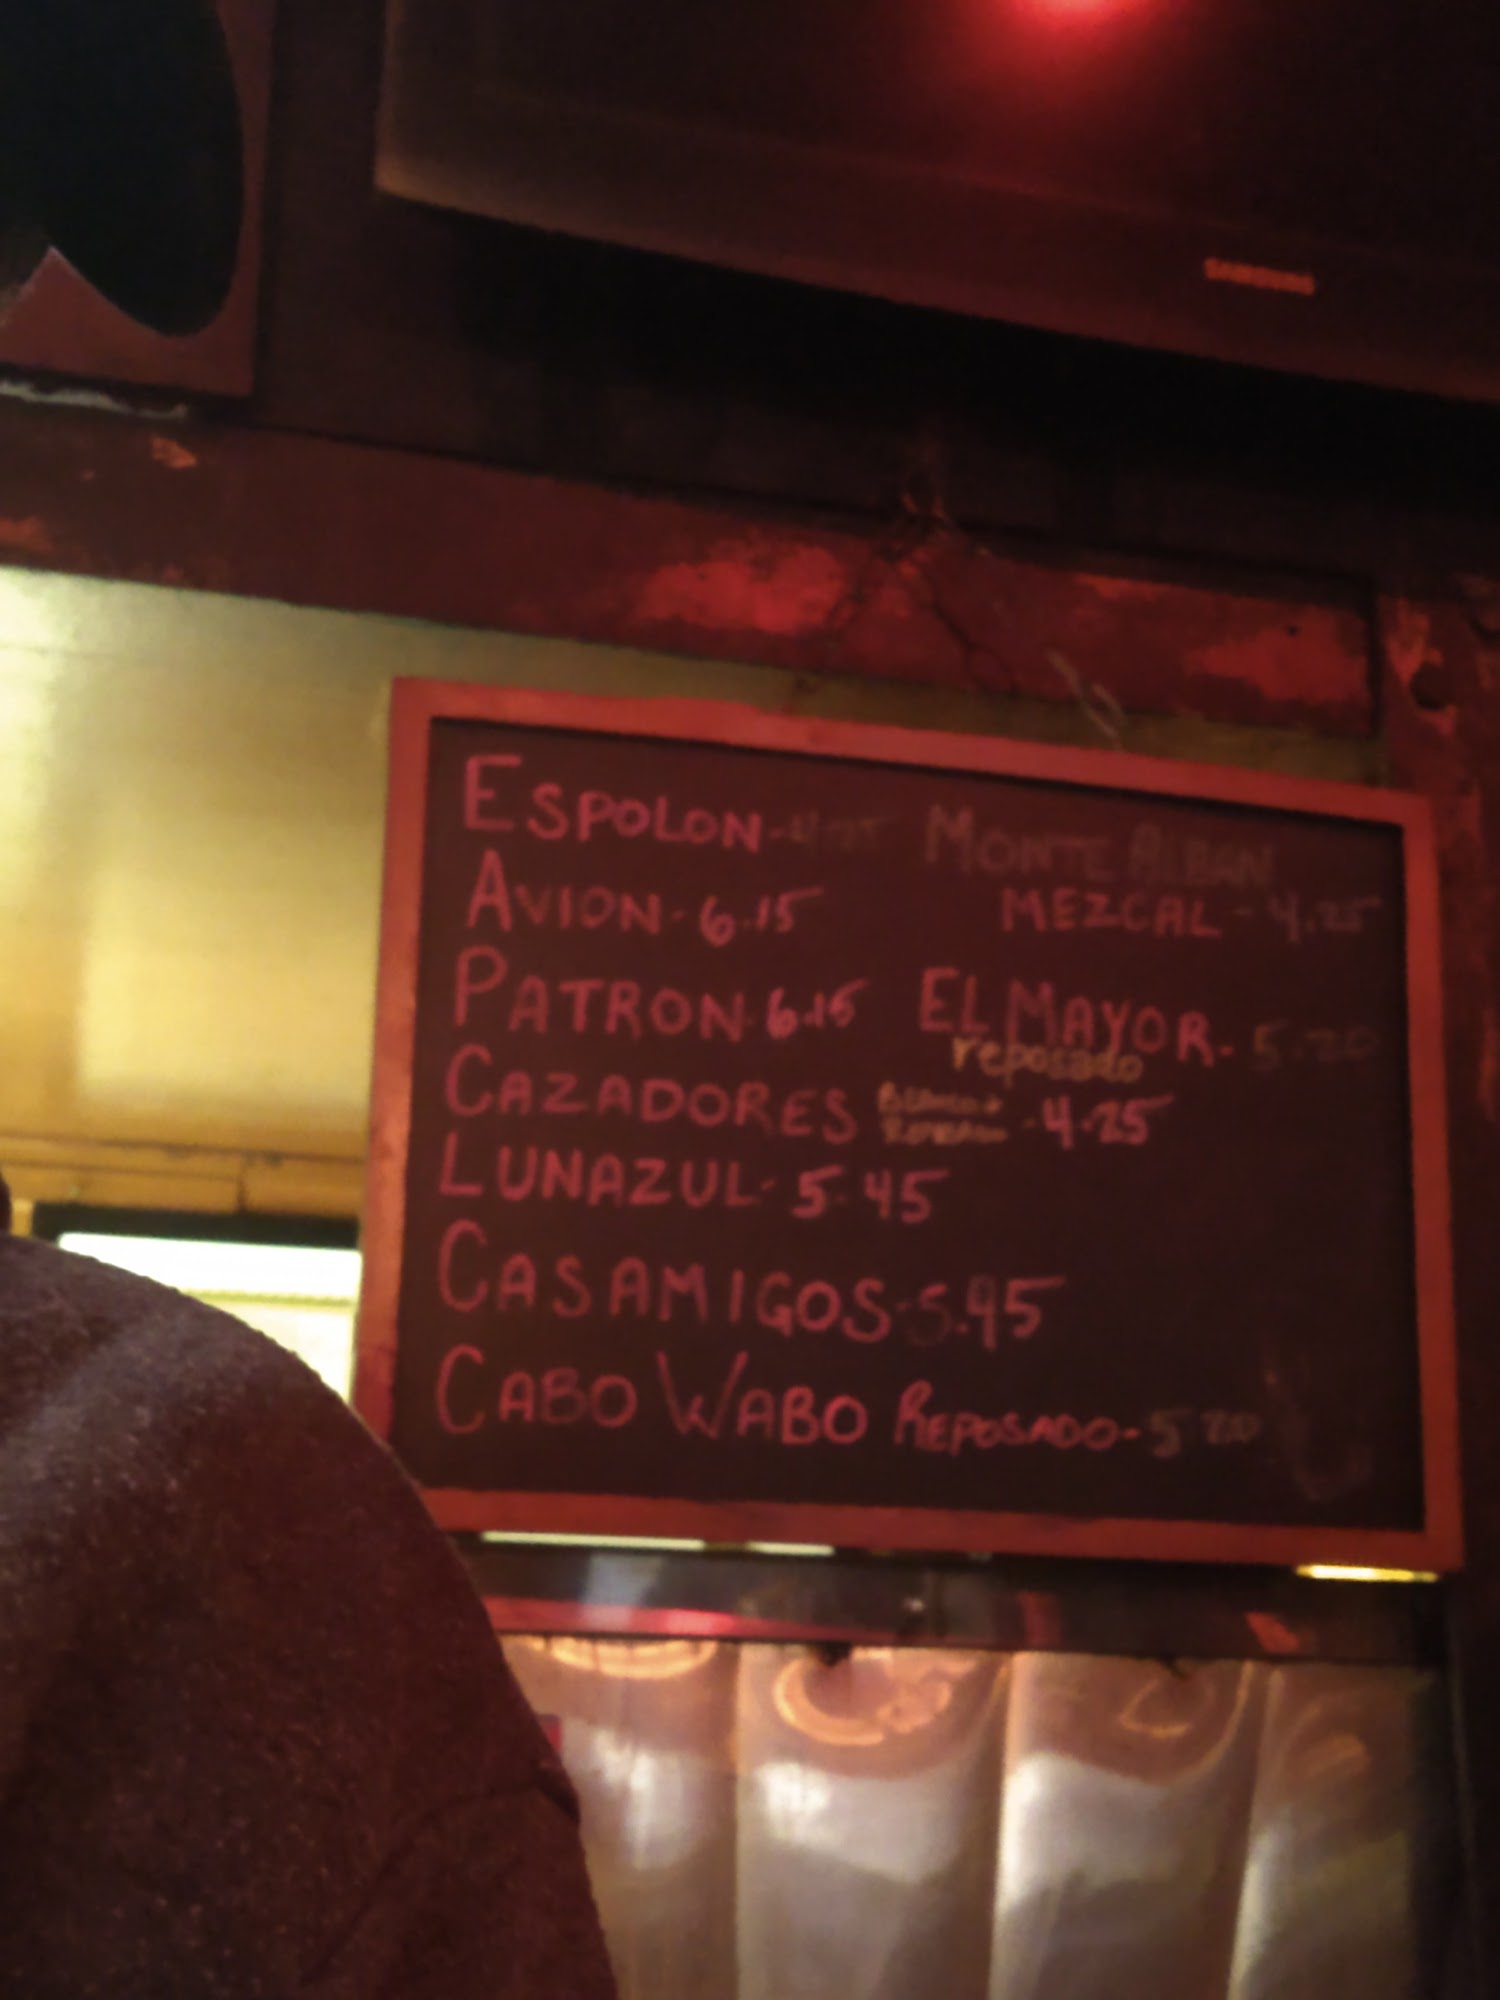 SAMSUNG
ESPOLON-4.25
AVION-6.15
PATRON-6.15
CAZADORES
-4.25
LUNAZUL-5.45
CASAMIGOS-5.45
CABO WABO REPOSADO-5.20
MONTE ALBAN
MEZCAL-4.25
EL MAYOR-5.20
reposado